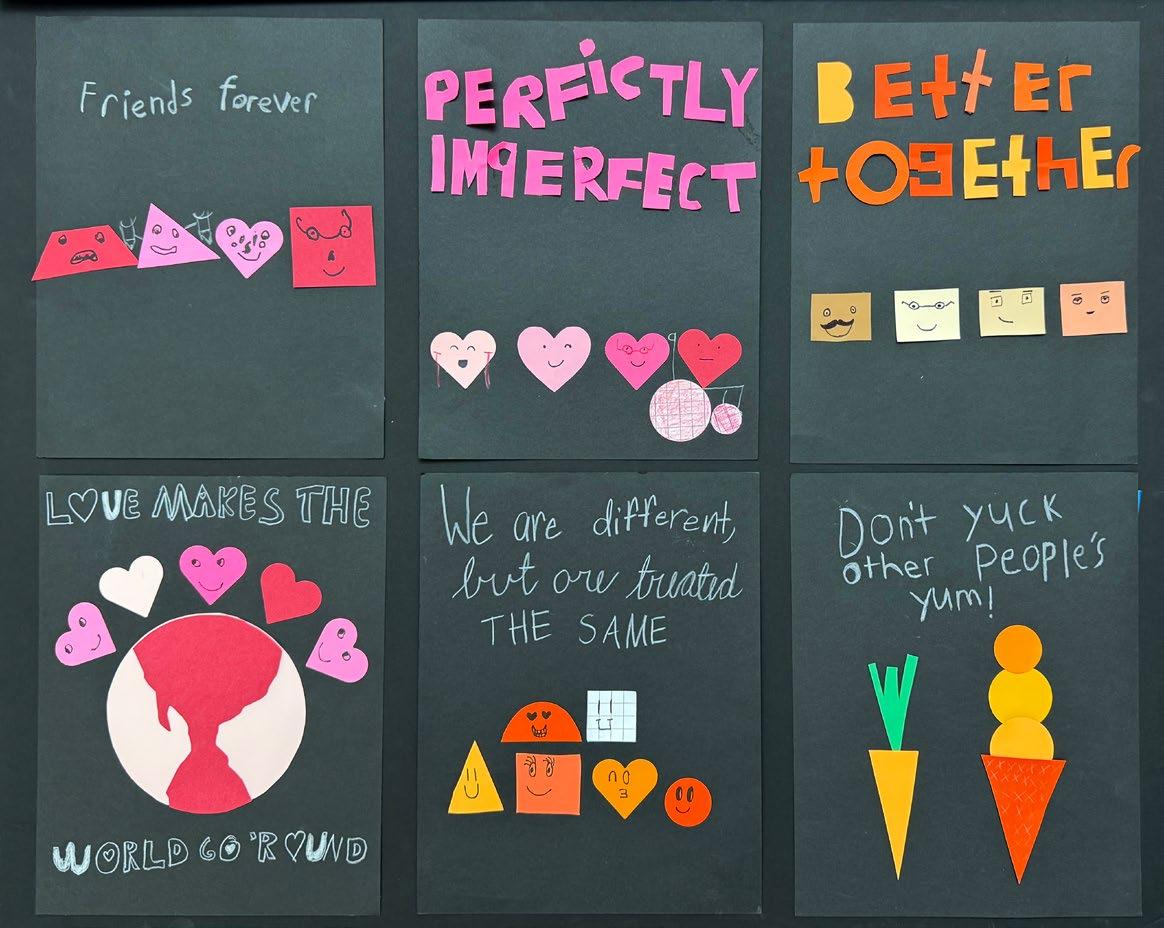 Friends forever
PERFiCTLY
IMPERFECT
BEttEr
tOgEthEr
LOVE MAKES THE
WORLD GO 'ROUND
We are different,
but are treated
THE SAME
Don't yuck
other People's
yum!